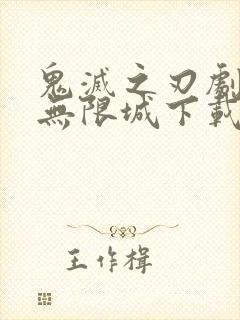 鬼滅之刃劇
無限城下載
王作楫